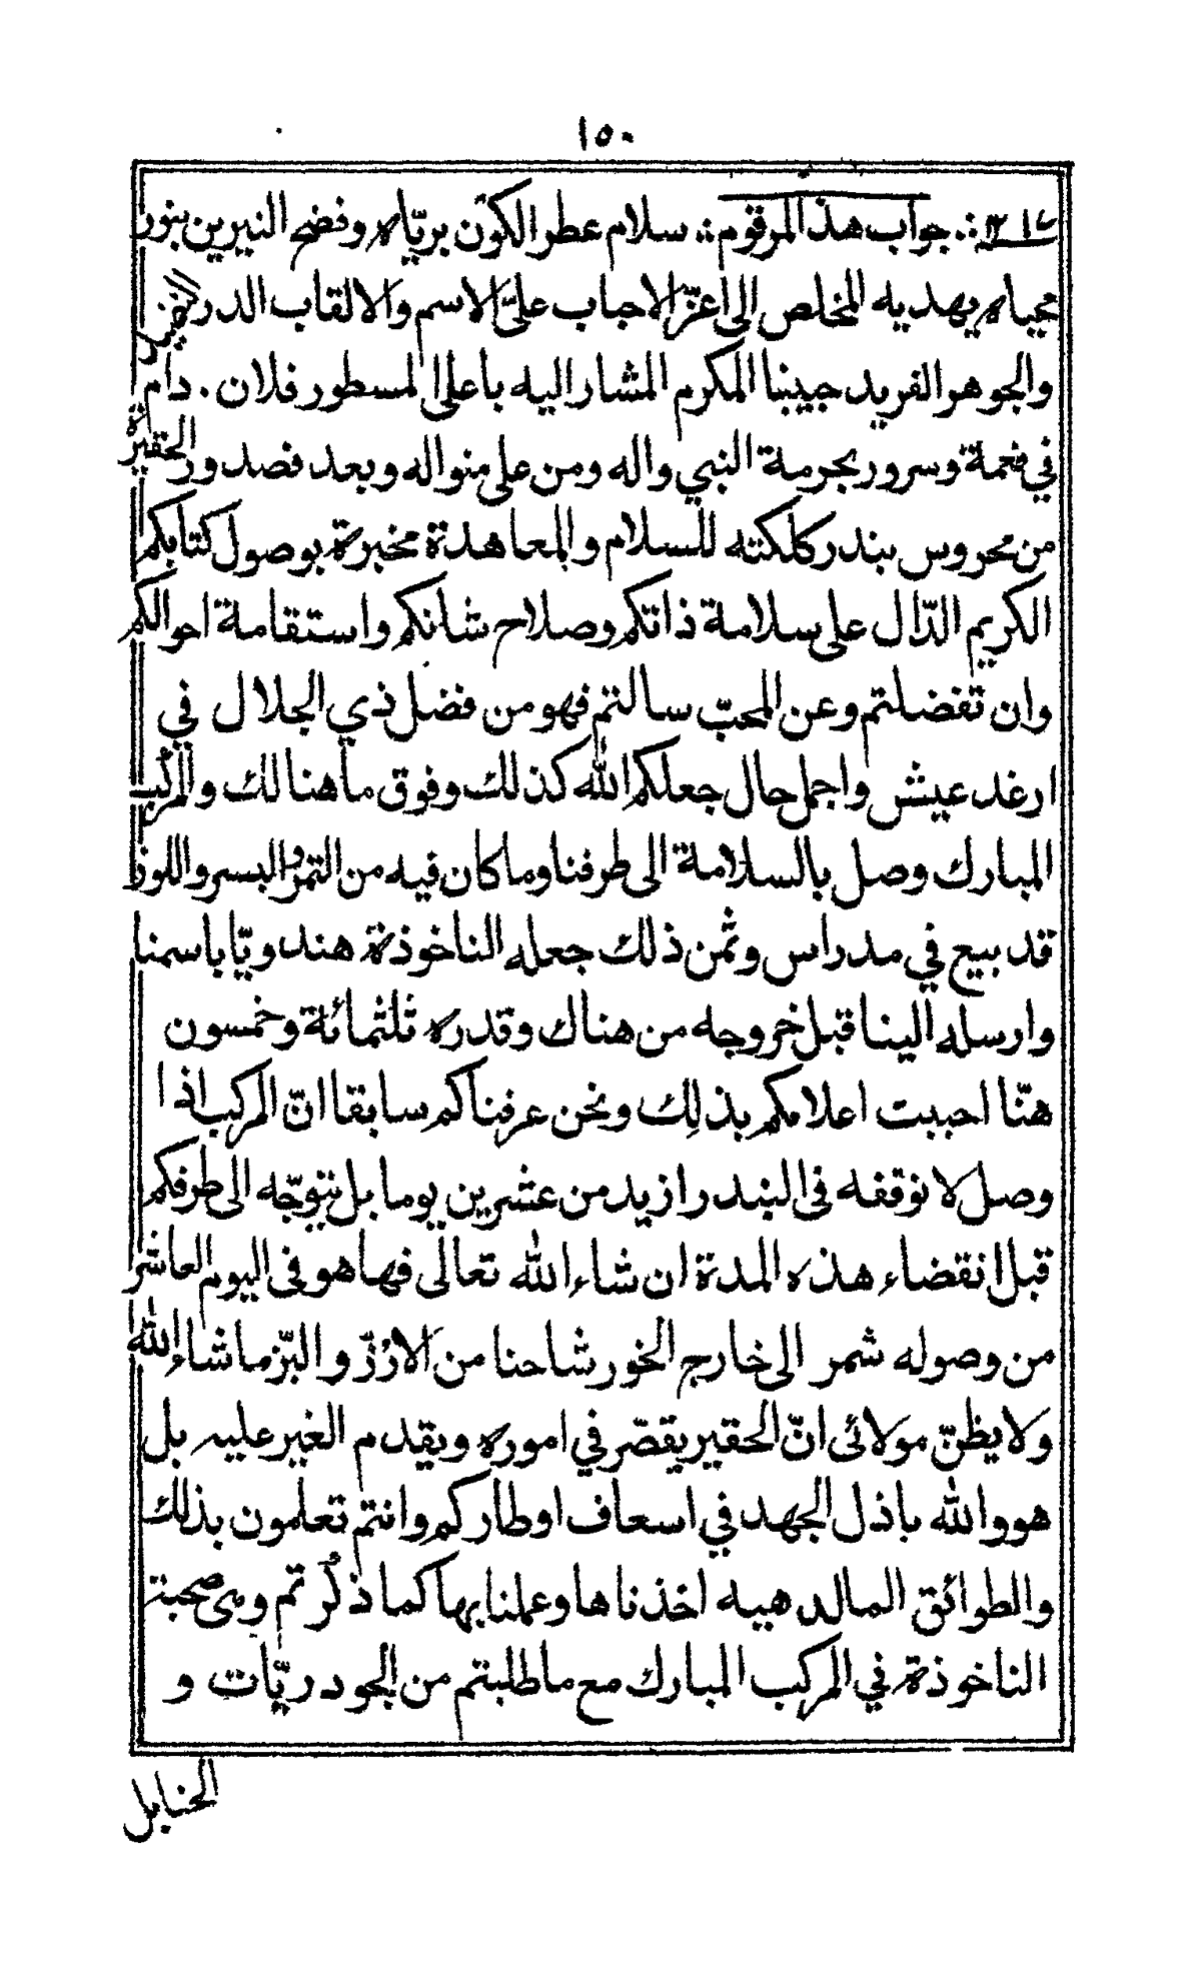 ١٥٠
جواب هذا المرقوم ∴ سلام عطر الكون بريّاه وفضح النيرين بنور
محياه يهديه المخلص الى اعزّ الاحباب عليّ الاسم والالقاب الدر النضير
والجوهر الفريد حبيبنا المكرم المشار اليه باعلى المسطور فلان . دام
في نعمة وسرور بحرمة النبي واله ومن على منواله وبعد فصدور الحقيرة
من محروس بندر كلكته للسلام والمعاهدة مخبرة بوصول كتابكم
الكريم الدّال على سلامة ذاتكم وصلاح شانكم واستقامة احوالكم
وان تفضلتم وعن المحبّ سالتم فهو من فضل ذي الجلال في
ارغد عيش واجمل حال جعلكم الله كذلك وفوق ما هنالك والمركب
المبارك وصل بالسلامة الى طرفنا وما كان فيه من التمر والبسر واللوز
قد بيع في مدراس وثمن ذلك جعله الناخوذة هندويّا باسمنا
وارسله الينا قبل خروجه من هناك وقدره ثلثمائة وخمسون
هنّا احببت اعلامكم بذلِك ونحن عرفناكم سابقا انّ المركب اذا
وصل لا نوقفه فى البندر ازيد من عشرين يوما بل يتوجّه الى طرفكم
قبل انقضاء هذه المدة ان شاء الله تعالى فها هو فى اليوم العاشر
من وصوله شمر الى خارج الخور شاحنا من الارُزّ والبّز ما شاء الله
ولا يظنّ مولائى انّ الحقير يقصّر في اموره ويقدم الغير عليه بل
هو والله باذل الجهد في اسعاف اوطاركم وانتم تعلمون بذلك
والطوائق المالدهيه اخذناها وعملنا بها كما ذكرتم وهى صحبة
الناخوذة في المركب المبارك مع ما طلبتم من الجودريّات و
الحنابل